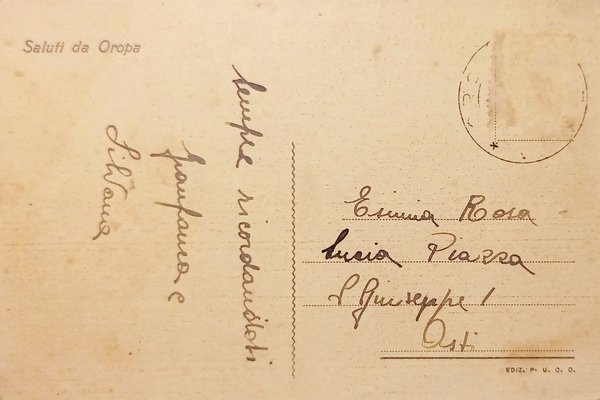 Saluti da Oropa
sempre ricordandoti
Gianfranca e
Silvana
Esimia Rosa
Lucia Piazza
S Giuseppe 1
Asti
EDIZ. P. U. O. O.